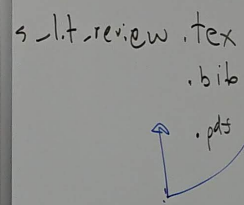 s_lit_review.tex
.bib
.pdf